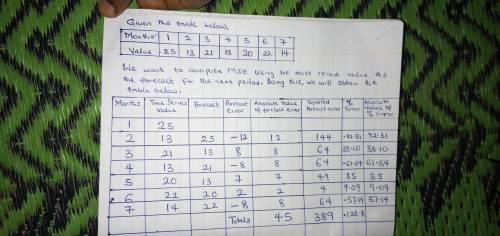 Given the table below,
Months 1 2 3 4 5 6 7
Value 25 13 21 13 20 22 14
We want to compute MSE using the most recent value as
the forecast for the next period. Doing this, we will obtain the
table below.
Months Time Series Value Forecast Forecast Error Absolute Value of forecast error Squared forecast error % Error Absolute Value of % error
1 25
2 13 25 -12 12 144 -92.31 92.31
3 21 13 8 8 64 38.10 38.10
4 13 21 -8 8 64 -61.54 61.54
5 20 13 7 7 49 35 35
6 22 20 2 2 4 9.09 9.09
7 14 22 -8 8 64 -57.14 57.14
Totals 45 389 -128.8